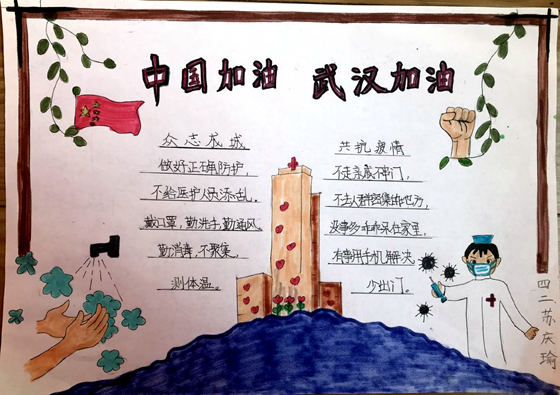 中国加油 武汉加油
众志成城
做好正确防护,
不给医护人员添乱。
戴口罩,勤洗手,勤通风。
勤消毒,不聚集,
测体温。
共抗疫情
不走亲戚不串门,
不去人群密集的地方,
没事乖乖呆在家里,
有事用手机解决。
少出门。
四二苏庆瑜